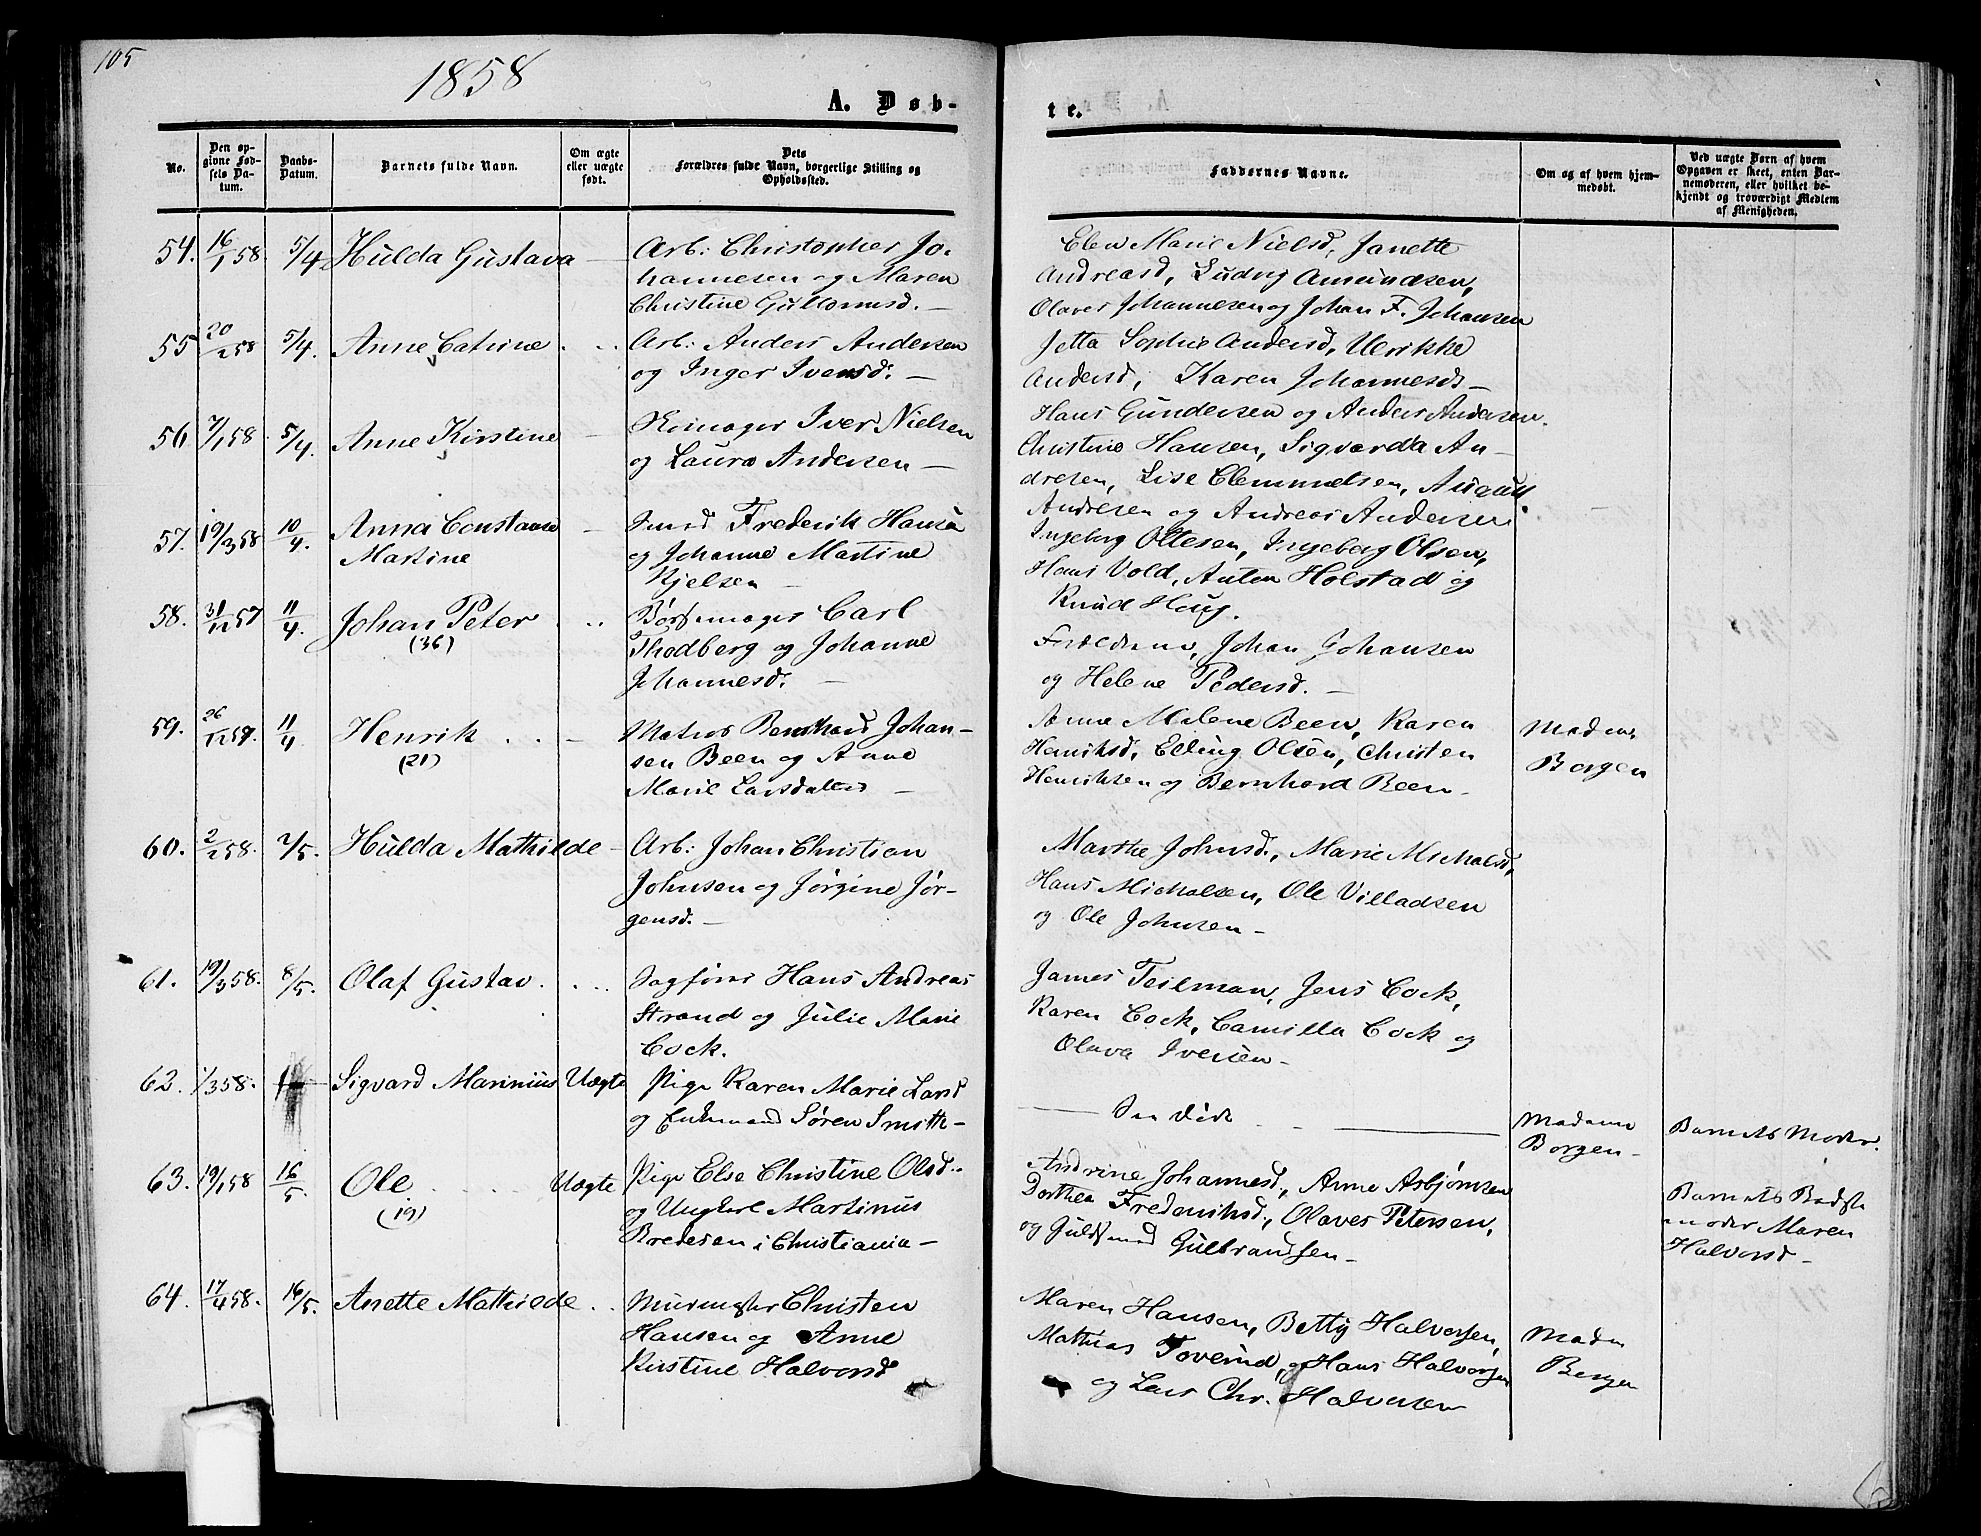 105
1858
A. Døb-
te.
No.
Den op-
givne Fød-
sels Da-
tum.
Daabs-
Datum.
Barnets fulde Navn.
Om ægte
eller uægte
født.
Dets
Forældres fulde Navn, borgerlige Stilling og
Opholdssted.
Faddernes Navne.
Om og af hvem hjem-
medøbt.
Ved uægte Børn af hvem
Opgaven er skeet, enten Bar-
nemoderen, eller hvilket be-
kjendt og troværdigt Medlem
af Menigheden.
54. 16/1 58. 5/4 Hulda Gustava —
Arb: Christopher Jo-
hannesen og Maren
Christine Gullomsd. —
Elen Marie Nielsd, Janette
Andreasd, Ludvig Amundsen,
Olaves Johannesen og Johan F. Johansen
55 20/2 58 5/4. Anne Catrine
Arb: Anders Andersen
og Inger Iversd. —
Jetta Sophie Andersd, Ulrikke
Andersd, Karen Johannesd —
Hans Gundersen og Anders Andersen.
56. 7/1 58. 5/4. Anne Kirstine —
Iver Nielsen
og Laura Andersen —
Christine Hansen, Sigvarda An-
dresen, Lise Clemmetsen, August
Andresen og Andreas Andersen.
57. 19/3 58 10/4. Anna Constanse —
Martine
Smed Frederik Hansen
og Johanne Martine
Kjelsen —
Ingeborg Ottesen, Ingeborg Olsen,
Hans Vold, Anton Holstad og
Knud Haug.
58. 31/12 57 11/4. Johan Peter
(36)
Børsemager Carl
Thodberg og Johanne
Johannesd. —
Forældrene, Johan Johansen
og Helene Pedersd. —
59. 26/12 57. 11/4 Henrik —
(21)
Matros Bernhard Johan-
sen Been og Anne
Marie Larsdatter —
Anne Milene Been, Karen
Henriksd, Elling Olsen, Christen
Henriksen og Bernhard Been —
Madme
Borgen
60. 2/2 58. 2/5. Hulda Mathilde —
Arb: Johan Christian
Johnsen og Jørgine Jør-
gensd. —
Marthe Johnsd., Marie Michalsd,
Hans Michalsen, Ole Villadsen
og Ole Johnsen —
61. 19/3 58. 8/5. Olaf Gustav
Sagfører Hans Andreas
Strand og Julie Marie
Cock.
James Teilman, Jens Cock,
Karen Cock, Camilla Cock og
Olava Iversen —
62. 1/3 58. Sigvard Marinius Uægte
Pige Karen Marie Larsd
og Enkemand Søren Smith —
— See Døde —
Madame
Borgen —
Barnets Moder.
63. 19/1 58 16/5. Ole Uægte
(19)
Pige Else Christine Olsd. —
og Ungkarl Martinus
Bredesen i Christiania —
Andrine Johannesd, Anne Asbjørnsen
Dorthea Frederiksd., Olaves Petersen,
og Guldsmed Gulbrandsen —
Barnets Bedste
moder Maren
Halvorsd —
64. 17/4 58. 16/5. Anette Mathilde
Murmester Christen
Hansen og Anne
Kirstine Halvorsd
Maren Hansen, Betty Halvorsen,
Mathias Toverud, og Hans Halvorsen
og Lars Chr. Halvorsen
Madm
Borgen